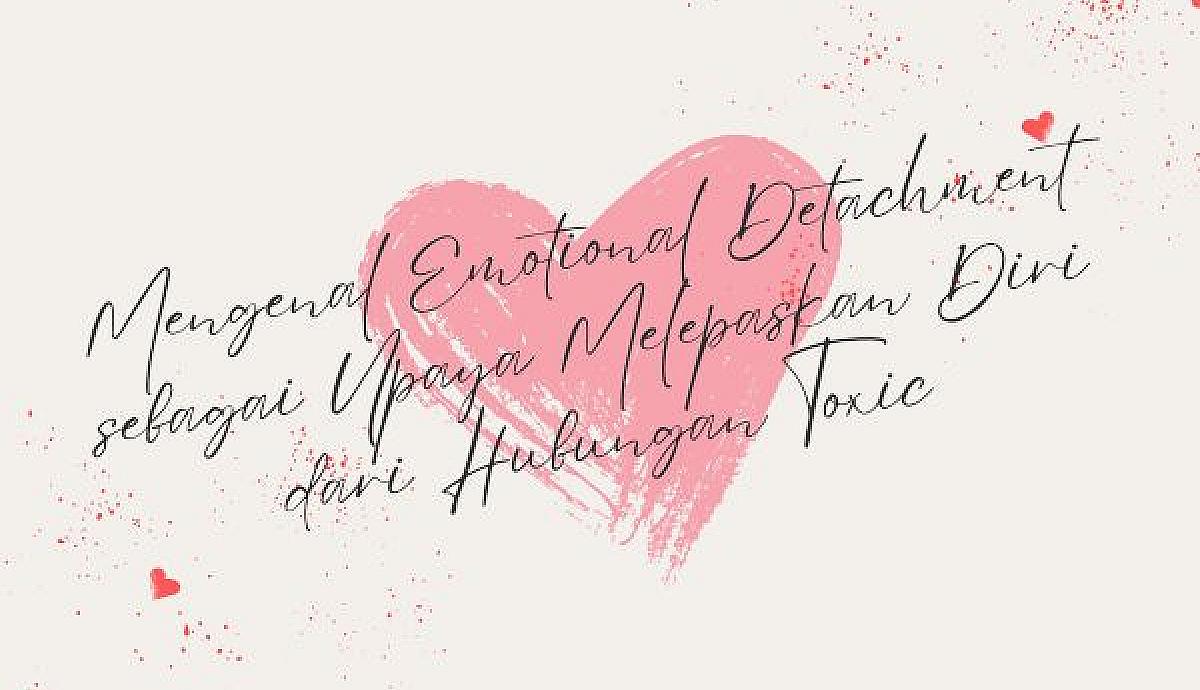 Mengenal Emotional Detachment
sebagai Upaya Melepaskan Diri
dari Hubungan Toxic